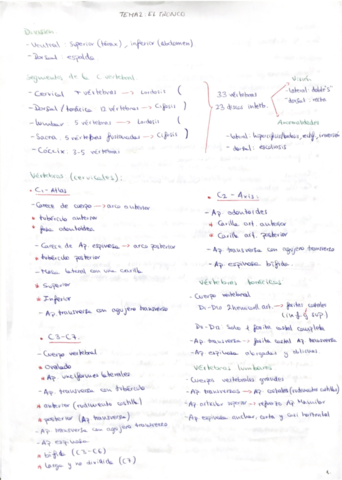 TEMA 2: EL TRONCO
División:
- Ventral: superior (tórax), inferior (abdomen)
- Dorsal: espalda
Segmentos de la C. vertebral:
- Cervical 7 vértebras → Lordosis (
- Dorsal / torácica 12 vértebras → Cifosis )
- Lumbar 5 vértebras → Lordosis (
- Sacra 5 vértebras fusionadas → Cifosis )
- Cóccix: 3-5 vértebras
33 vértebras
23 discos interv.
Visión:
- lateral:
- dorsal: recta
Anormalidades
- lateral:
- dorsal: escoliosis
Vértebras (cervicales):
C1 - Atlas
- Carece de cuerpo → arco anterior
tubérculo anterior
fosa odontoidea
- Carece de Ap espinosa → arco posterior
tubérculo posterior
- Masa lateral con una carilla
Superior
Inferior
- Ap. transversa con agujero transverso
C3-C7:
- Cuerpo vertebral
ovalado
Ap. unciformes laterales
- Ap. transversa con tubérculo
anterior (rudimento costilla)
posterior (Ap transversa)
- Ap transversa con agujero transverso
- Ap espinosa
bífida (C3-C6)
larga y no dividida (C7)
C2 - Axis:
- Ap. odontoides
Carilla art. anterior
Carilla art. posterior
- Ap. transversa con agujero transverso
- Ap. espinosa bífida
Vértebras torácicas
- Cuerpo vertebral
(inf y sup)
- Ap. transversa → carilla costal Ap transversa
- Ap espinosa alargadas y oblicuas
Vértebras lumbares
- Cuerpos vertebrales grandes
- Ap. transversa → Ap costales (rudimento costilla)
- Ap espinosa